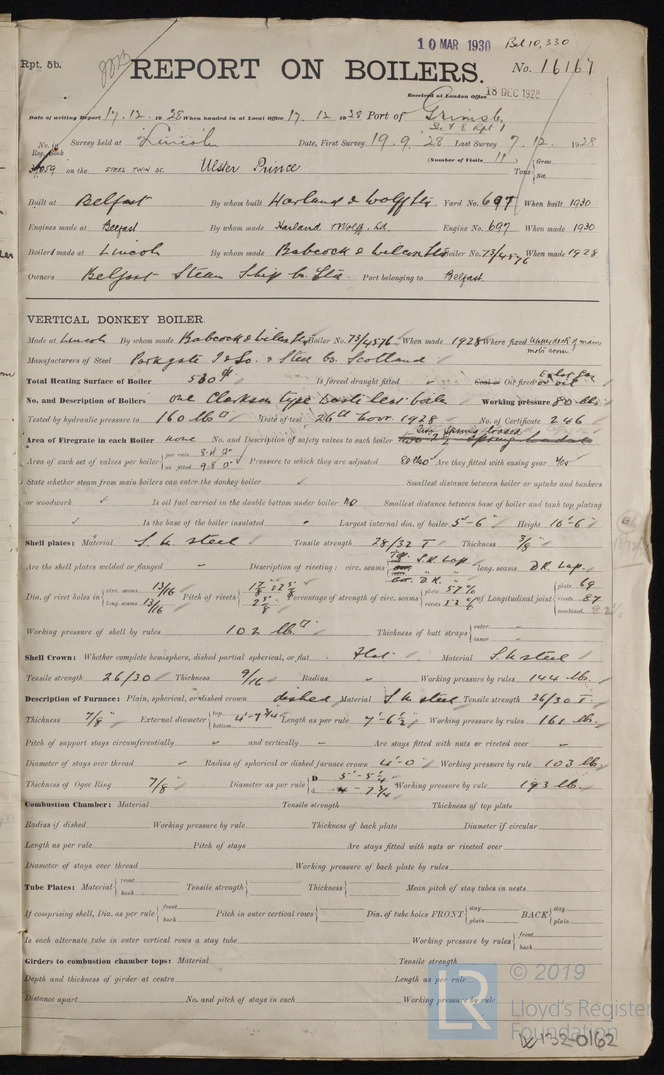 10 MAR 1930 Bel 10,330
Rpt. 5b.
REPORT ON BOILERS.
No. 16167
Received at London Office 18 DEC 1928
Date of writing Report 17.12.1928 When handed in at Local Office 17.12.1928 Port of Grimsby
No. in Reg. Book Survey held at Lincoln Date, First Survey 19.9.28 Last Survey 7.12.1928
(Number of Visits 11) Gross Tons Net
on the STEEL TWIN SC. Ulster Prince
Built at Belfast By whom built Harland & Wolff Ltd Yard No. 697 When built 1930
Engines made at Belfast By whom made Harland Wolff Ld. Engine No. 697 When made 1930
Boilers made at Lincoln By whom made Babcock & Wilcox Ltd Boiler No. 73/4576 When made 1928
Owners Belfast Steam Ship Co Ltd. Port belonging to Belfast.
VERTICAL DONKEY BOILER.
Made at Lincoln By whom made Babcock & Wilcox Ltd Boiler No. 73/4576 When made 1928 Where fixed
Manufacturers of Steel Parkgate I & Co. & Steel Co. Scotland
Total Heating Surface of Boiler 500 Is forced draught fitted Coal or Oil fired
No. and Description of Boilers one Clarkson type Working pressure 80 lbs.
Tested by hydraulic pressure to 160 lbs Date of test 26th Novr. 1928 No. of Certificate 246
Area of Firegrate in each Boiler none No. and Description of safety valves to each boiler Two Spring loaded
Area of each set of valves per boiler per rule 8.4 as fitted 9.8 Pressure to which they are adjusted Are they fitted with easing gear Yes
State whether steam from main boilers can enter the donkey boiler Smallest distance between boiler or uptake and bunkers
or woodwork Is oil fuel carried in the double bottom under boiler NO Smallest distance between base of boiler and tank top plating
Is the base of the boiler insulated Largest internal dia. of boiler 5'-6" Height 10'-6"
Shell plates: Material S.M. steel Tensile strength 28/32 T Thickness 3/8"
Are the shell plates welded or flanged Description of riveting: circ. seams Top S.R. Lap Bot. D.R. " long. seams D.R. Lap.
Dia. of rivet holes in circ. seams 13/16 long. seams 13/16 Pitch of rivets Percentage of strength of circ. seams plate 57% rivets of Longitudinal joint plate 69 rivets 87 combined
Working pressure of shell by rules 102 lbs Thickness of butt straps outer inner
Shell Crown: Whether complete hemisphere, dished partial spherical, or flat Flat Material S.M. steel
Tensile strength 26/30 Thickness 9/16 Radius Working pressure by rules 144 lb.
Description of Furnace: Plain, spherical, or dished crown dished Material S.M. steel Tensile strength 26/30 T
Thickness 7/8" External diameter top bottom 4'-7 3/4" Length as per rule 7'-6 1/2" Working pressure by rules 161 lb.
Pitch of support stays circumferentially and vertically Are stays fitted with nuts or riveted over
Diameter of stays over thread Radius of spherical or dished furnace crown 4'-0" Working pressure by rule 103 lb.
Thickness of Ogee Ring 7/8" Diameter as per rule D 5'-5 1/4 d 4-7 3/4 Working pressure by rule 193 lb.
Combustion Chamber: Material Tensile strength Thickness of top plate
Radius if dished Working pressure by rule Thickness of back plate Diameter if circular
Length as per rule Pitch of stays Are stays fitted with nuts or riveted over
Diameter of stays over thread Working pressure of back plate by rules
Tube Plates: Material front back Tensile strength Thickness Mean pitch of stay tubes in nests
If comprising shell, Dia. as per rule front back Pitch in outer vertical rows Dia. of tube holes FRONT stay plain BACK stay plain
Is each alternate tube in outer vertical rows a stay tube Working pressure by rules front back
Girders to combustion chamber tops: Material Tensile strength
Depth and thickness of girder at centre Length as per rule
Distance apart No. and pitch of stays in each Working pressure by rule
LR © 2019
Lloyd's Register
Foundation
W132-0162